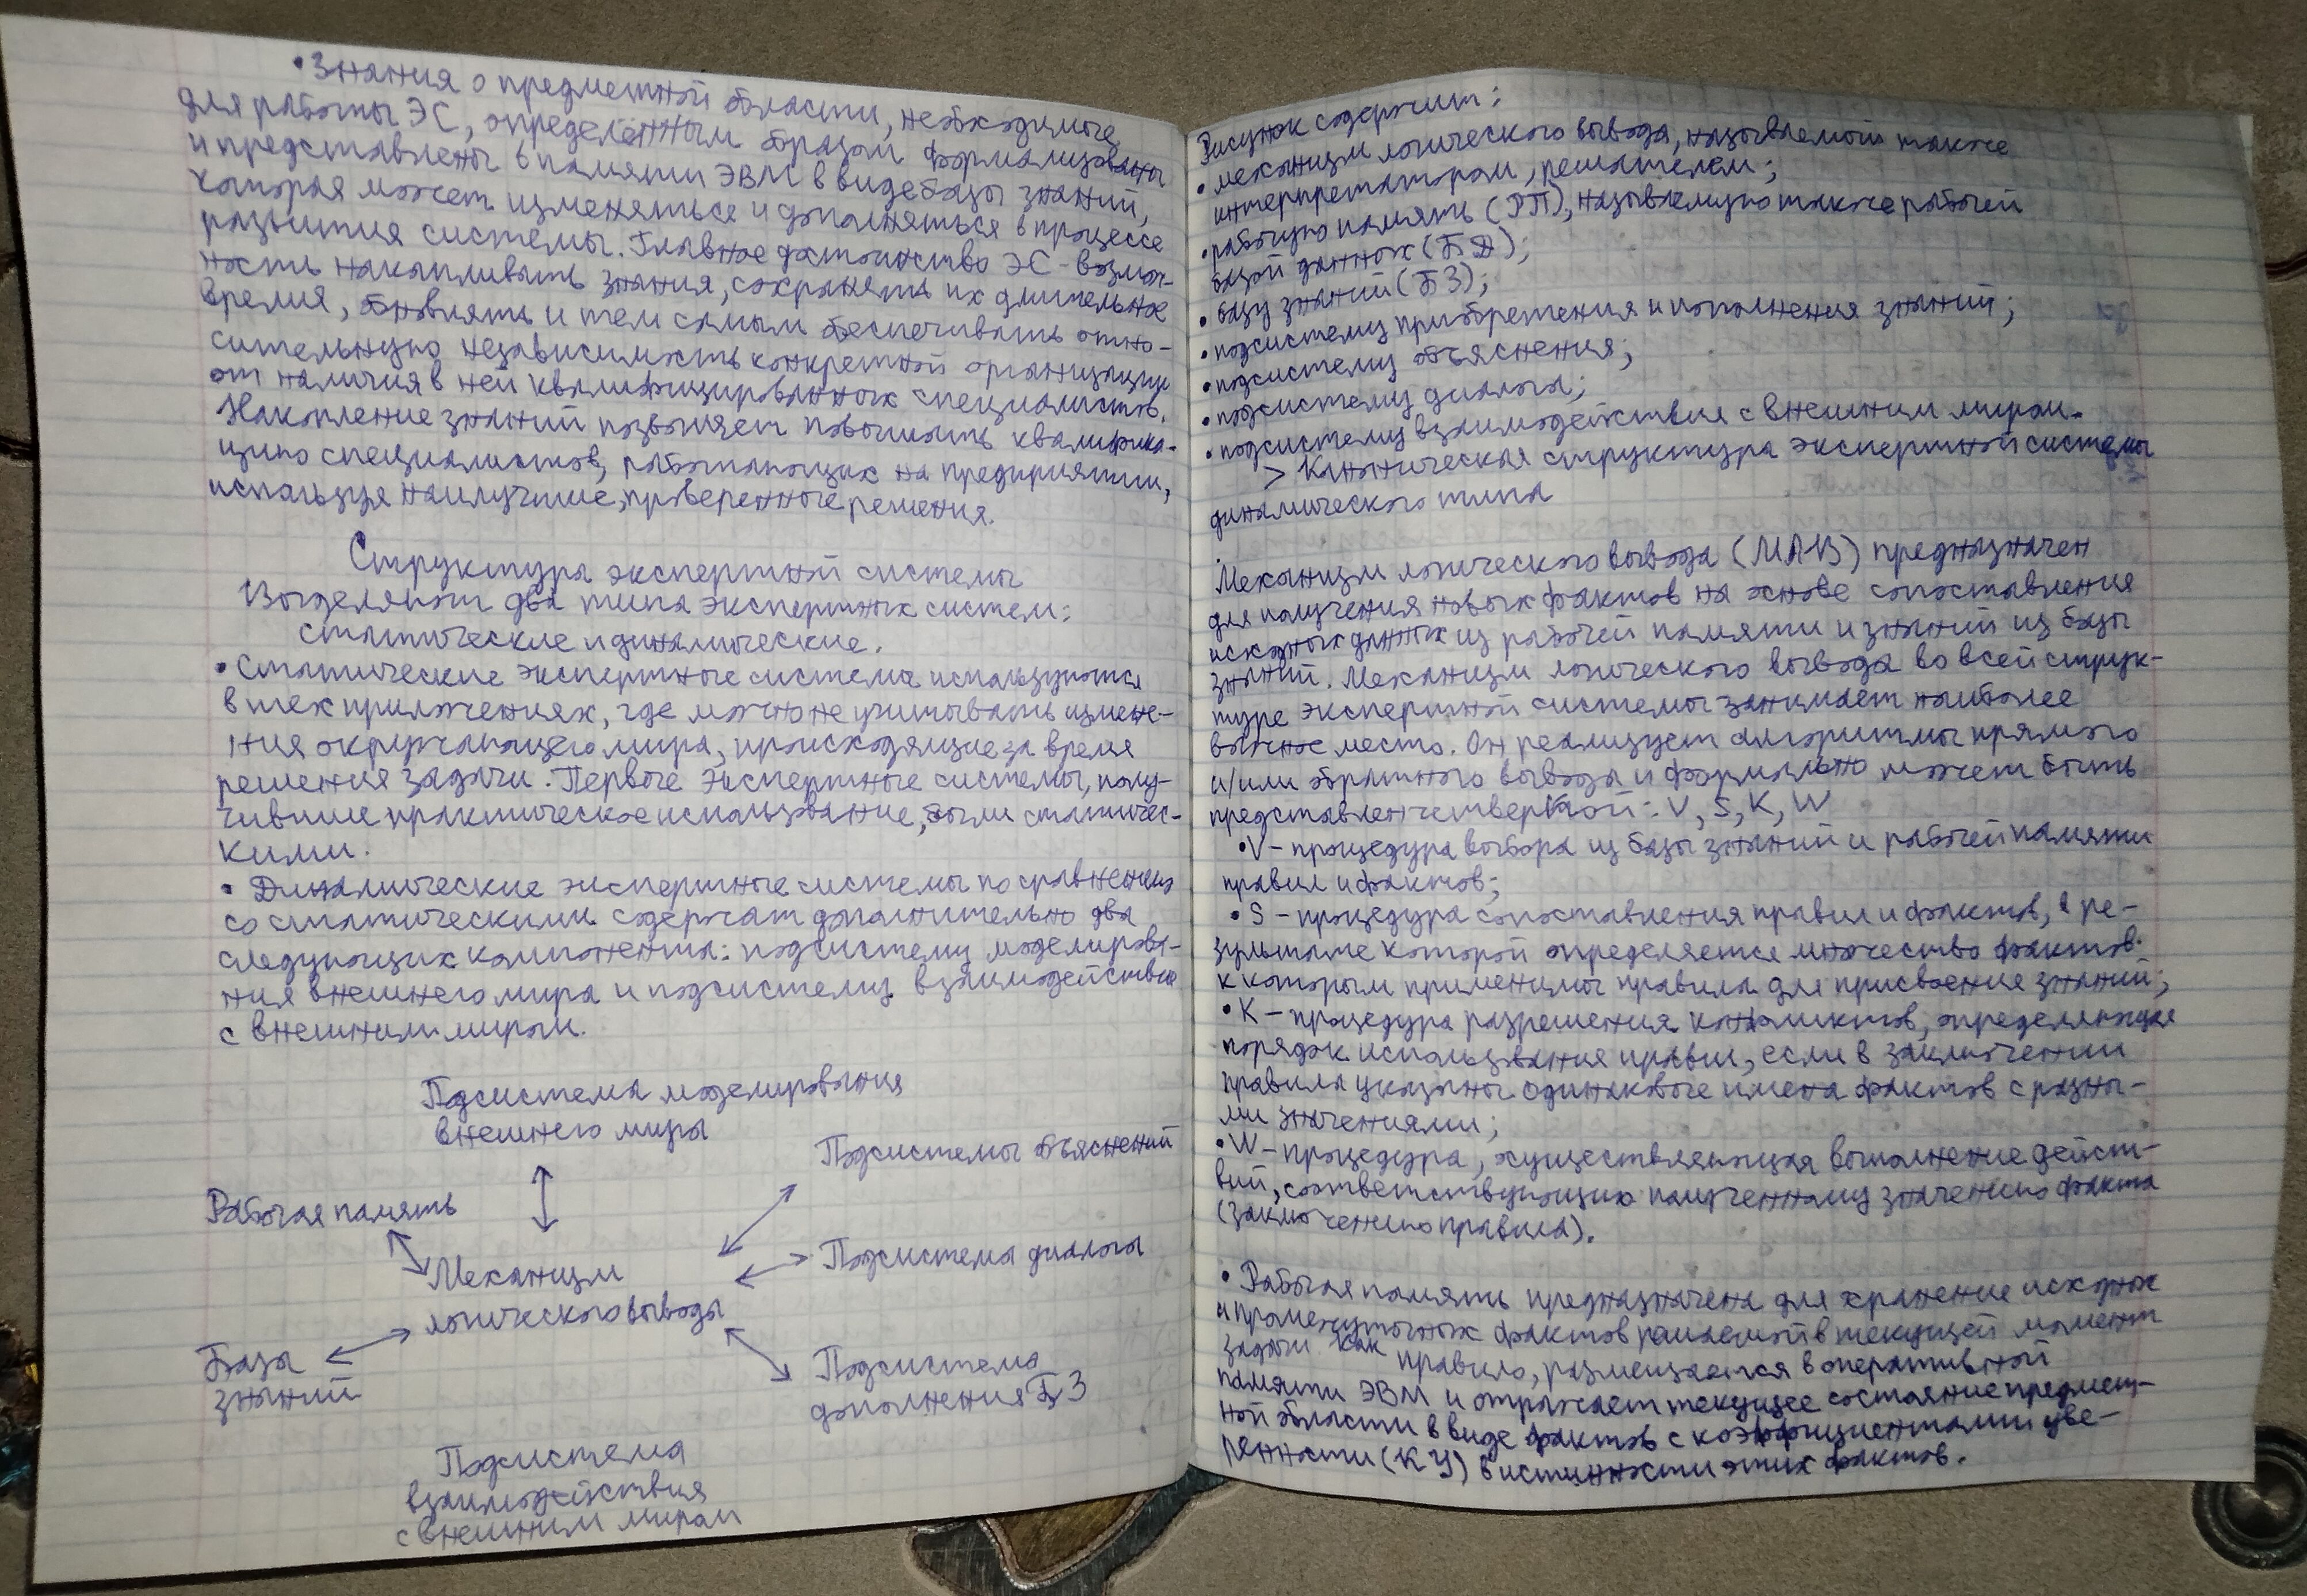 •Знания о предметной области, необходимые
для работы ЭС, определённым образом формализованы
и представлены в памяти ЭВМ в виде базы знаний,
которая может изменяться и дополняться в процессе
развития системы. Главное достоинство ЭС - возмож-
ность накапливать знания, сохранять их длительное
время, обновлять и тем самым обеспечивать отно-
сительную независимость конкретной организации
от наличия в ней квалифицированных специалистов.
Накопление знаний позволяет повышать квалифика-
цию специалистов, работающих на предприятии,
используя наилучшие, проверенные решения.
Структура экспертной системы
Выделяют два типа экспертных систем:
статические и динамические.
• Статические экспертные системы используются
в тех приложениях, где можно не учитывать измене-
ния окружающего мира, происходящие за время
решения задачи. Первые экспертные системы, полу-
чившие практическое использование, были статичес-
кими.
• Динамические экспертные системы по сравнению
со статическими содержат дополнительно два
следующих компонента: подсистему моделирова-
ния внешнего мира и подсистему взаимодействия
с внешним миром.
Подсистема моделирования
внешнего мира
Подсистемы объяснений
Рабочая память
Подсистема диалога
Механизм
логического вывода
Базы
знаний
Подсистема
дополнения БЗ
Подсистема
взаимодействия
с внешним миром
Рисунок содержит:
• механизм логического вывода, называемый также
интерпретатором, решателем;
• рабочую память (РП), называемую также рабочей
базой данных (БД);
• базу знаний (БЗ);
• подсистему приобретения и пополнения знаний;
• подсистему объяснения;
• подсистему диалога;
• подсистему взаимодействия с внешним миром.
> Каноническая структура экспертной системы
динамического типа
Механизм логического вывода (МЛВ) предназначен
для получения новых фактов на основе сопоставления
исходных данных из рабочей памяти и знаний из базы
знаний. Механизм логического вывода во всей струк-
туре экспертной системы занимает наиболее
важное место. Он реализует алгоритмы прямого
и/или обратного вывода и формально может быть
представлен четверкой: V, S, K, W
•V - процедура выбора из базы знаний и рабочей памяти
правил и фактов;
• S - процедура сопоставления правил и фактов, в ре-
зультате которой определяется множество фактов
к которым применимы правила для присвоения знаний;
• K - процедура разрешения конфликтов, определяющая
порядок использования правил, если в заключении
правила указаны одинаковые имена фактов с разны-
ми значениями;
• W - процедура, осуществляющая выполнение дейст-
вий, соответствующих полученному значению факта
(заключению правила).
• Рабочая память предназначена для хранение исходных
и промежуточных фактов решаемой в текущей момент
задачи Как правило, размещается в оперативной
памяти ЭВМ и отражает текущее состояние предмет-
ной области в виде фактов с коэффициентами уве-
ренности (КУ) в истинности этих фактов.